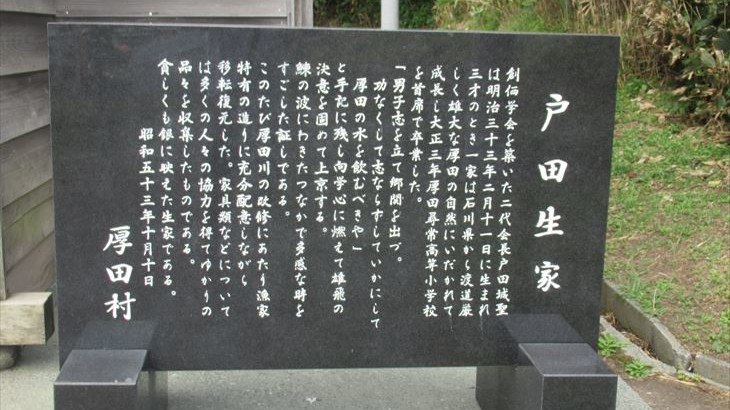 戸田生家
創価学会を築いた二代会長戸田城聖
は明治三十三年二月十一日に生まれ
三才のとき一家は石川県から渡道厳
しく雄大な厚田の自然にいだかれて
成長し大正三年厚田尋常高等小学校
を首席で卒業した。
「男子志を立て郷関を出づ。
功なくして志ならずしていかにして
厚田の水を飲むべきや」
と手記に残し向学心に燃えて雄飛の
決意を固めて上京する。
鰊の波にわきたつなかで多感な時を
すごした証しである。
このたび厚田川の改修にあたり漁家
特有の造りに充分配意しながら
移転復元した。家具類などについて
は多くの人々の協力を得てゆかりの
品々を収集したものである。
貧しくも銀に映えた生家である。
昭和五十三年十月十日
厚田村